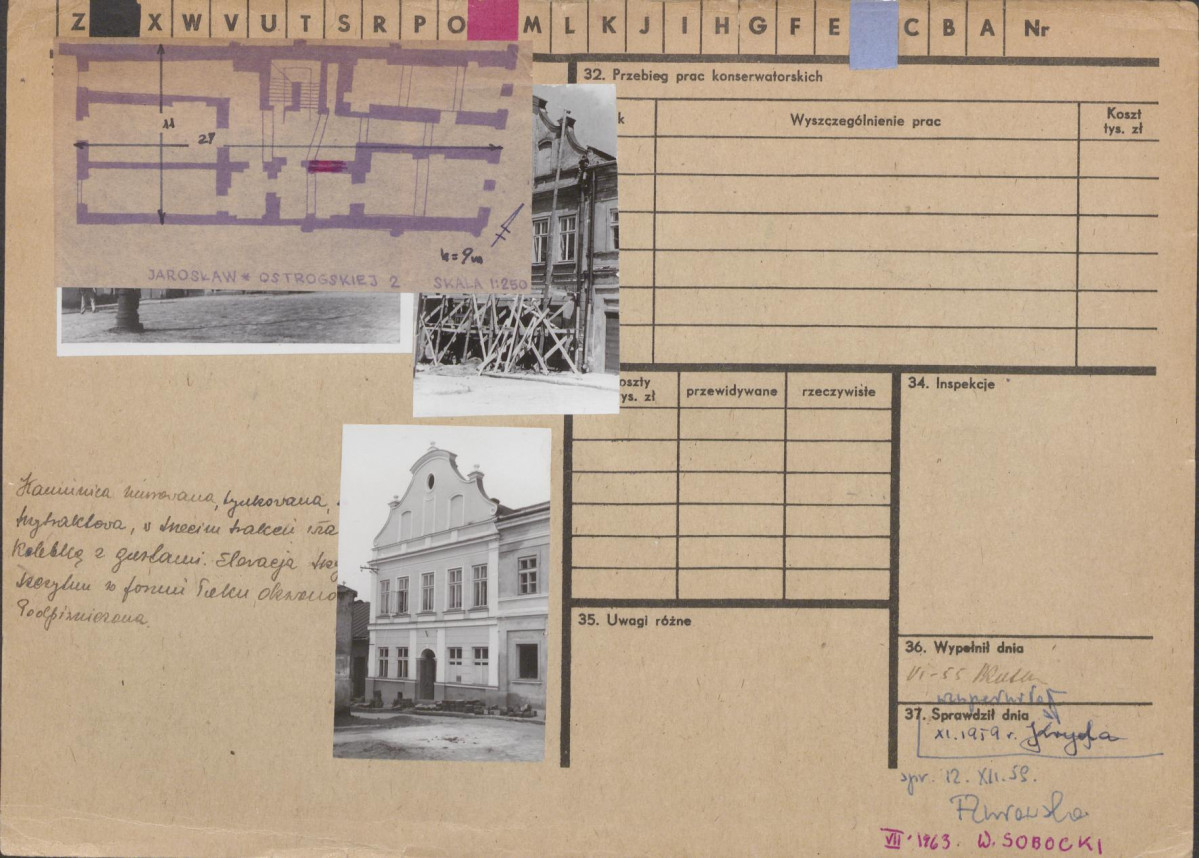 Z X W V U T S R P O M L K J I H G F E C B A Nr
11
27
h = 9 m
JAROSŁAW * OSTROGSKIEJ 2 SKALA 1:250
32. Przebieg prac konserwatorskich
k
Wyszczególnienie prac
Koszt
tys. zł
oszty
ys. zł
przewidywane
rzeczywiste
34. Inspekcje
Kamienica murowana, tynkowana,
trzytraktowa, w trzecim trakcie
Kolebką z gurtami. Elewacja
szczytem w formi
Podpiwniczona.
35. Uwagi różne
36. Wypełnił dnia
VI-55
uzupełnił
37. Sprawdził dnia
XI.1959 r.
spr. 12. XII. 59.
VII. 1963. W. SOBOCKI